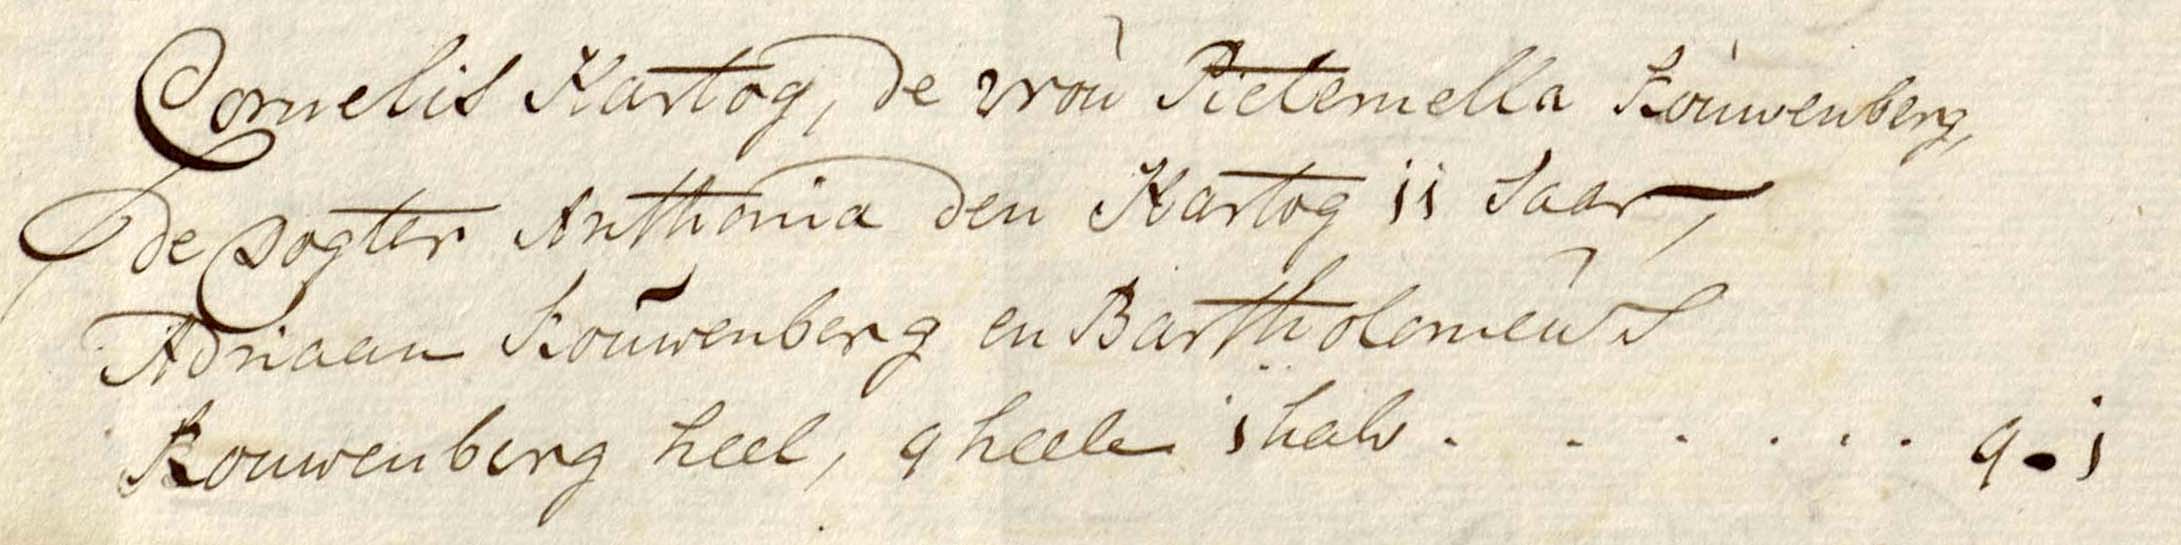 Cornelis Hartog, de vroù Pieternella Koùwenberg,
de Dogter Anthonia den Hartog 11 Jaar,
Adriaan Koũwenberg en Bartholomeùs
Kouwenberg heel, 4 heele 1 halv . . . . . . 4 . 1